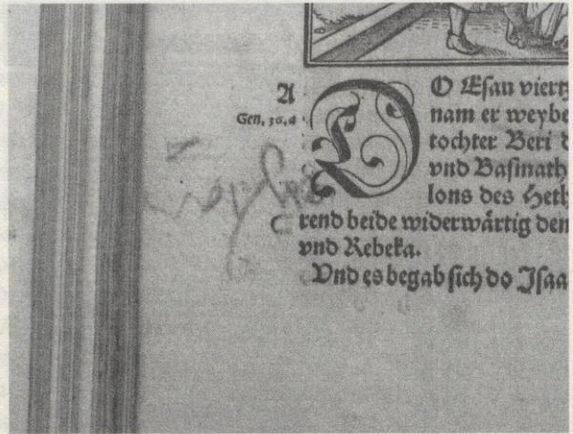 A
Gen. 36.a
DO Eſau viertz
nam er weybe
tochter Beri d
vnd Baſmath
lons des Heth
rend beide widerwärtig den
vnd Rebeka.
Vnd es begab ſich do Iſaa